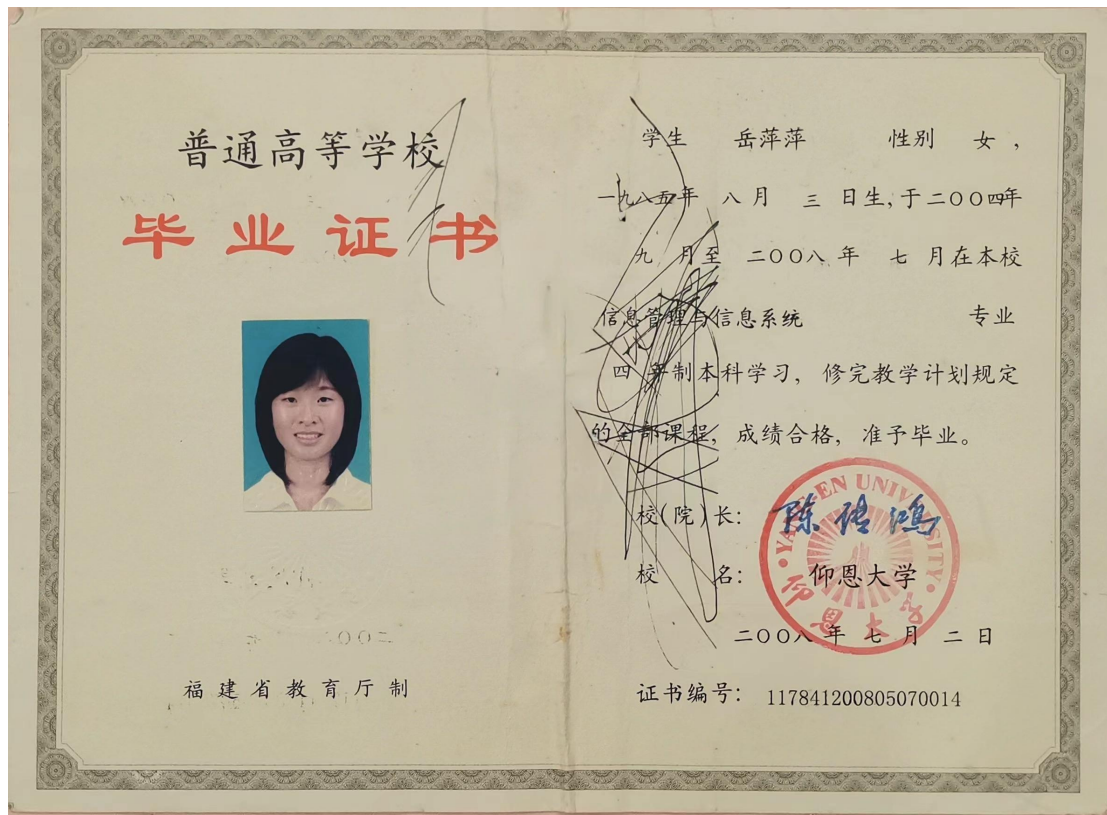 普通高等学校
毕业证书
福建省教育厅制
学生 岳萍萍 性别 女，
一九八五年 八月 三 日生，于二〇〇四年
九 月至 二〇〇八 年 七 月在本校
信息管理与信息系统 专业
四 年制本科学习，修完教学计划规定
的全部课程，成绩合格，准予毕业。
校(院)长：陈传鸿
校 名：仰恩大学
YANGEN UNIVERSITY
仰恩大学
二〇〇八 年 七 月 二 日
证书编号：117841200805070014